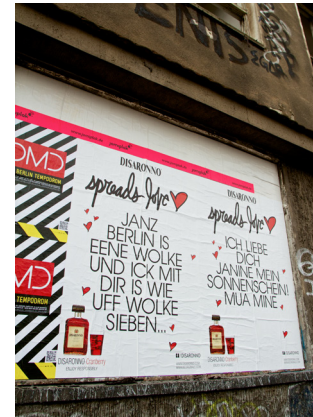 OMD
BERLIN TEMPODROM
OMD
TEMPODROM
DISARONNO
spreads love
JANZ
BERLIN IS
EENE WOLKE
UND ICK MIT
DIR IS WIE
UFF WOLKE
SIEBEN...
DISARONNO Cranberry
DISARONNO
spreads love
ICH LIEBE
DICH
JANINE MEIN
SONNENSCHEIN!
MIJA MINE